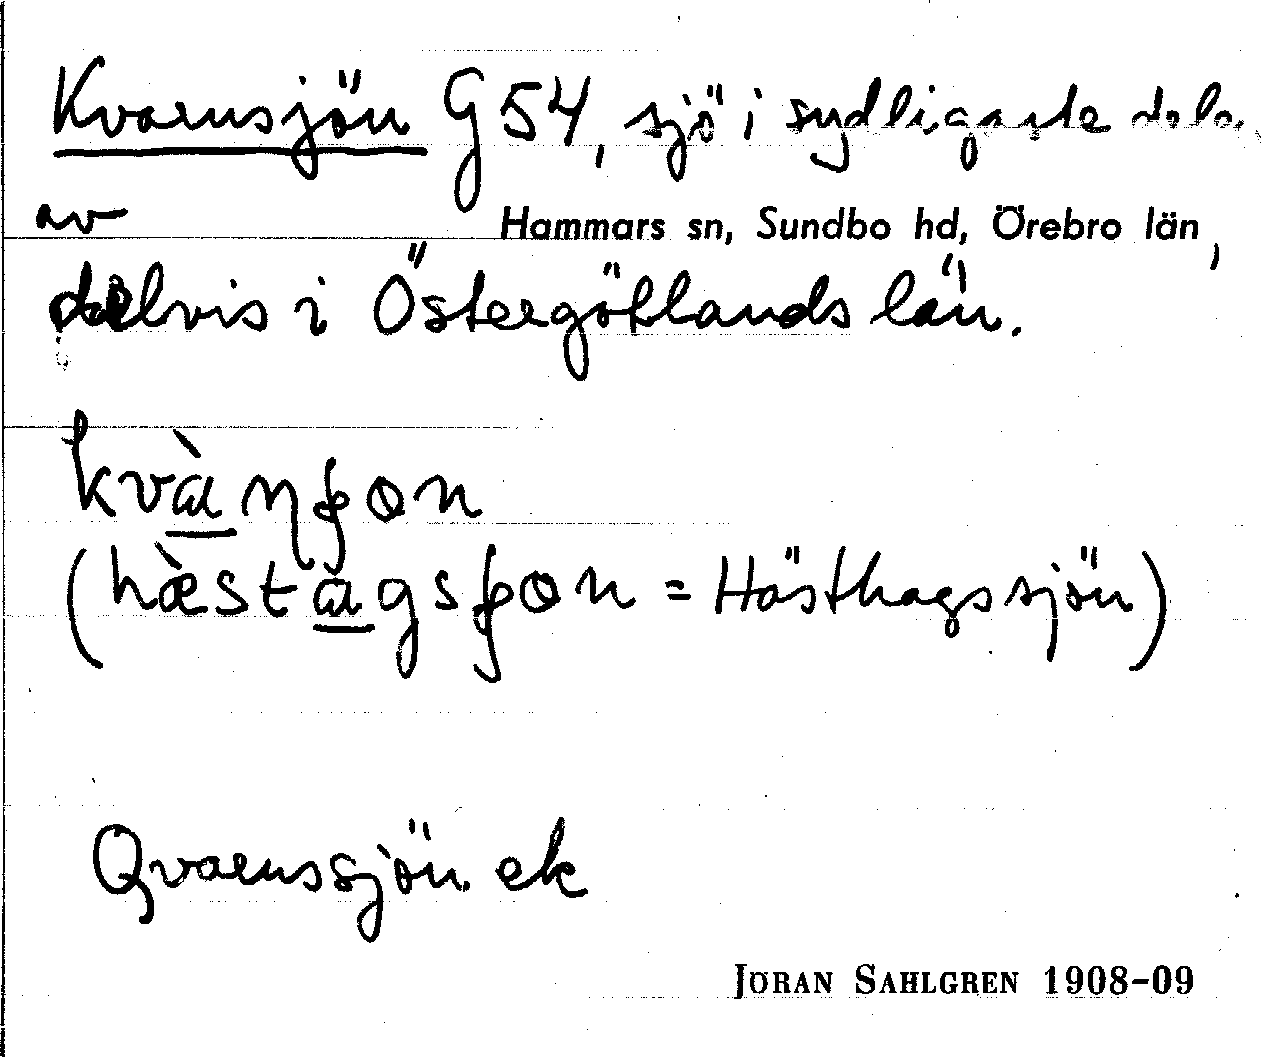 Kvarnsjön G 54, sjö i sydligaste dele
av Hammars sn, Sundbo hd, Örebro län,
delvis i Östergötlands län.
kvàɳʂon
(hæ̀stàgsʂon = Hästhagssjön)
Qvarnssjön ek
JÖRAN SAHLGREN 1908-09